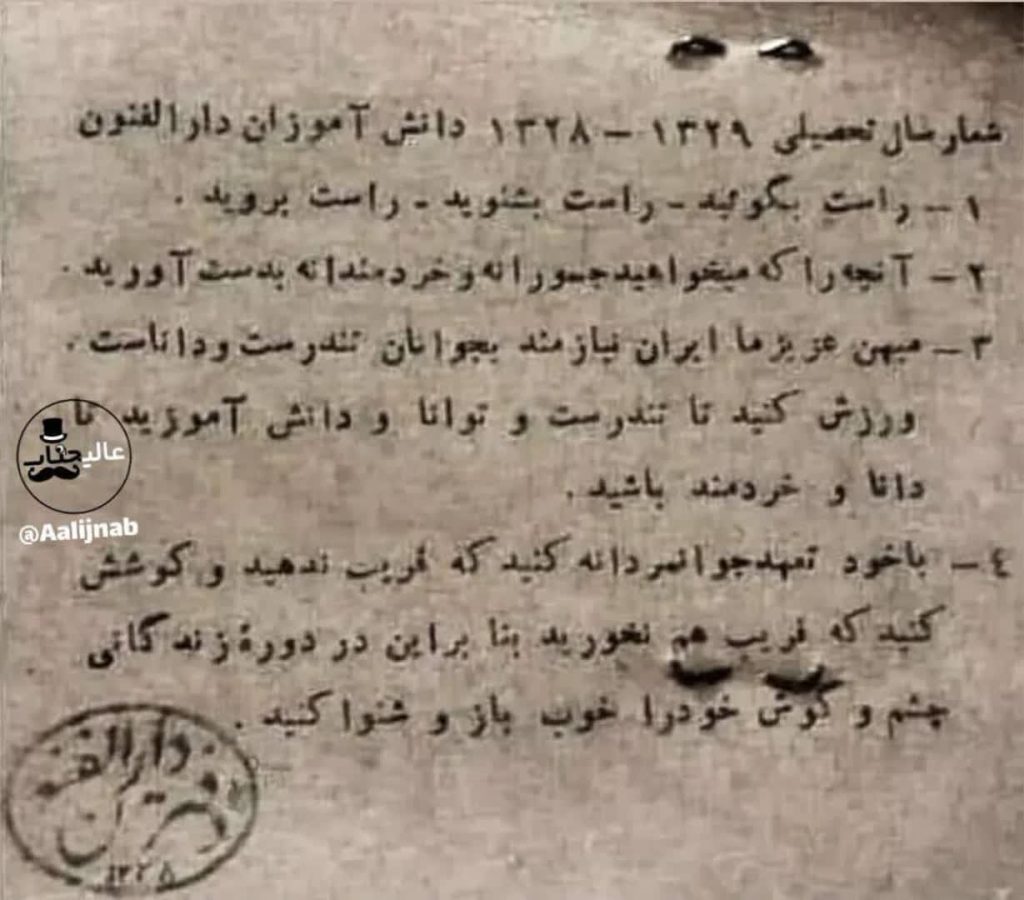 شعار سال تحصیلی ۱۳۲۹ – ۱۳۲۸ دانش آموزان دارالفنون
۱ – راست بگوئید - راست بشنوید - راست بروید .
۲ – آنچه را که میخواهید جسورانه و خردمندانه بدست آورید .
۳ – میهن عزیز ما ایران نیازمند بجوانان تندرست و داناست .
ورزش کنید تا تندرست و توانا و دانش آموزید تا
دانا و خردمند باشید .
٤ – باخود تعهد جوانمردانه کنید که فریب ندهید و کوشش
کنید که فریب هم نخورید بنا براین در دورهٔ زندگانی
چشم و گوش خودرا خوب باز و شنوا کنید .
عالیجناب
@Aalijnab
دبیرستان دارالفنون